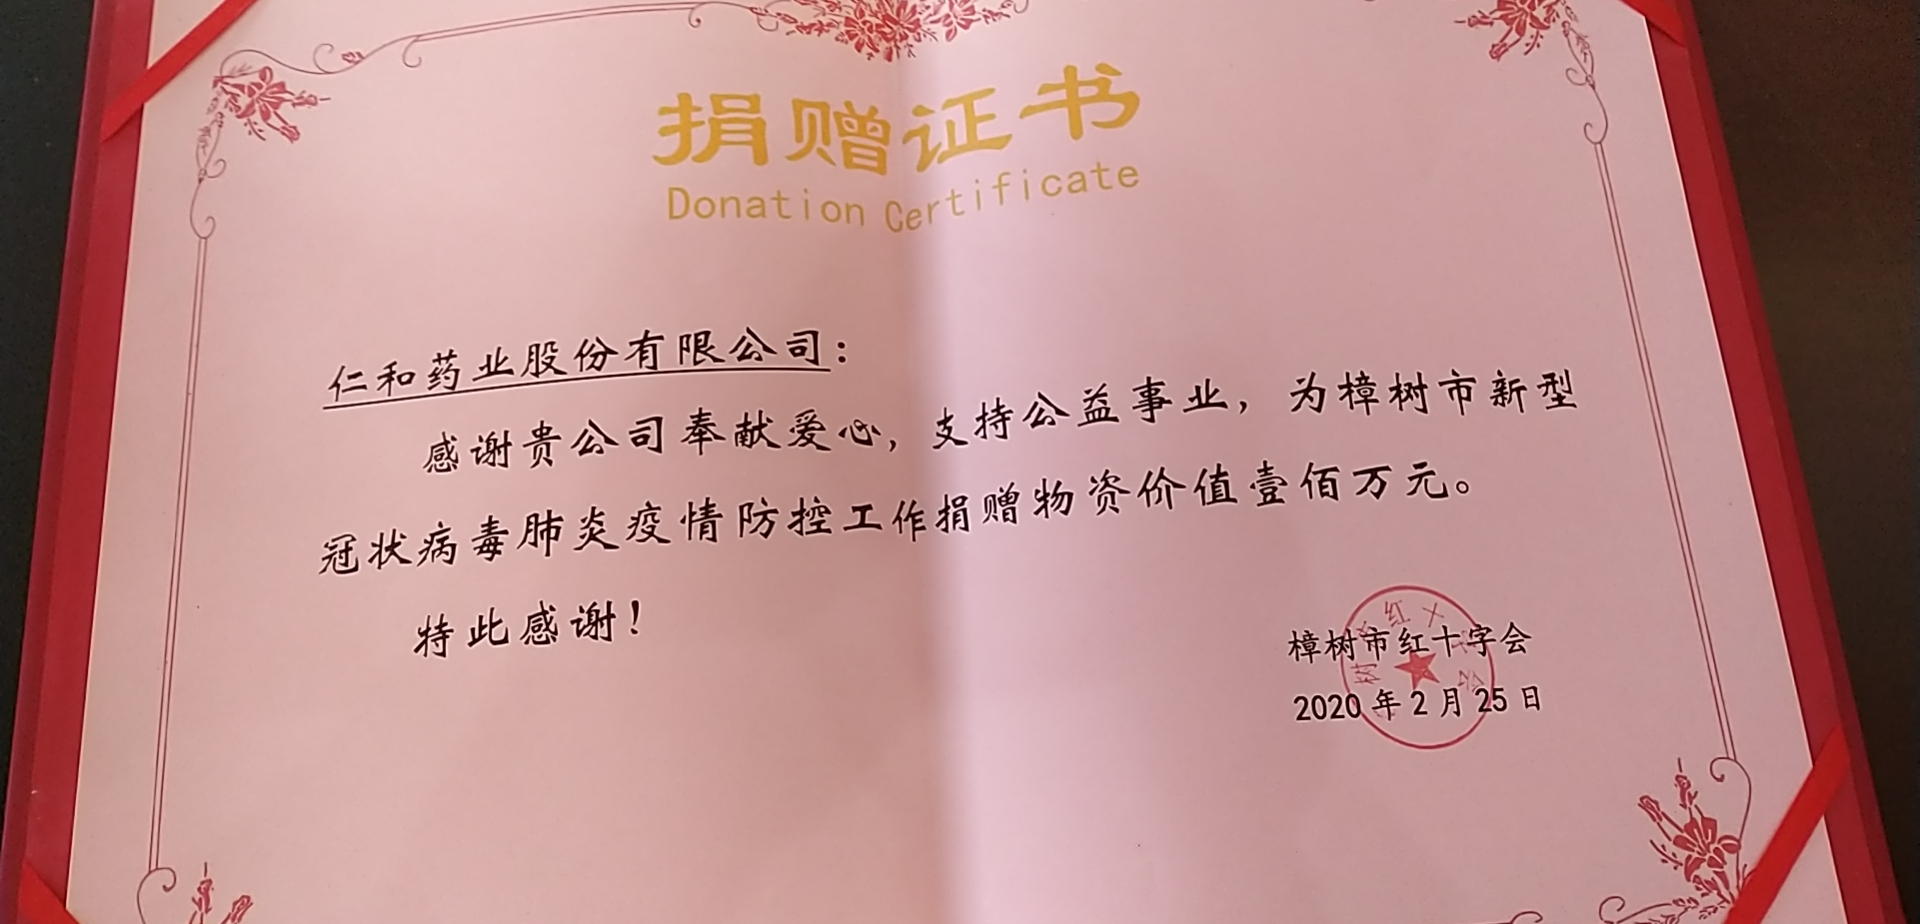 捐赠证书
Donation Certificate
仁和药业股份有限公司：
感谢贵公司奉献爱心，支持公益事业，为樟树市新型
冠状病毒肺炎疫情防控工作捐赠物资价值壹佰万元。
特此感谢！
樟树市红十字会
2020年2月25日